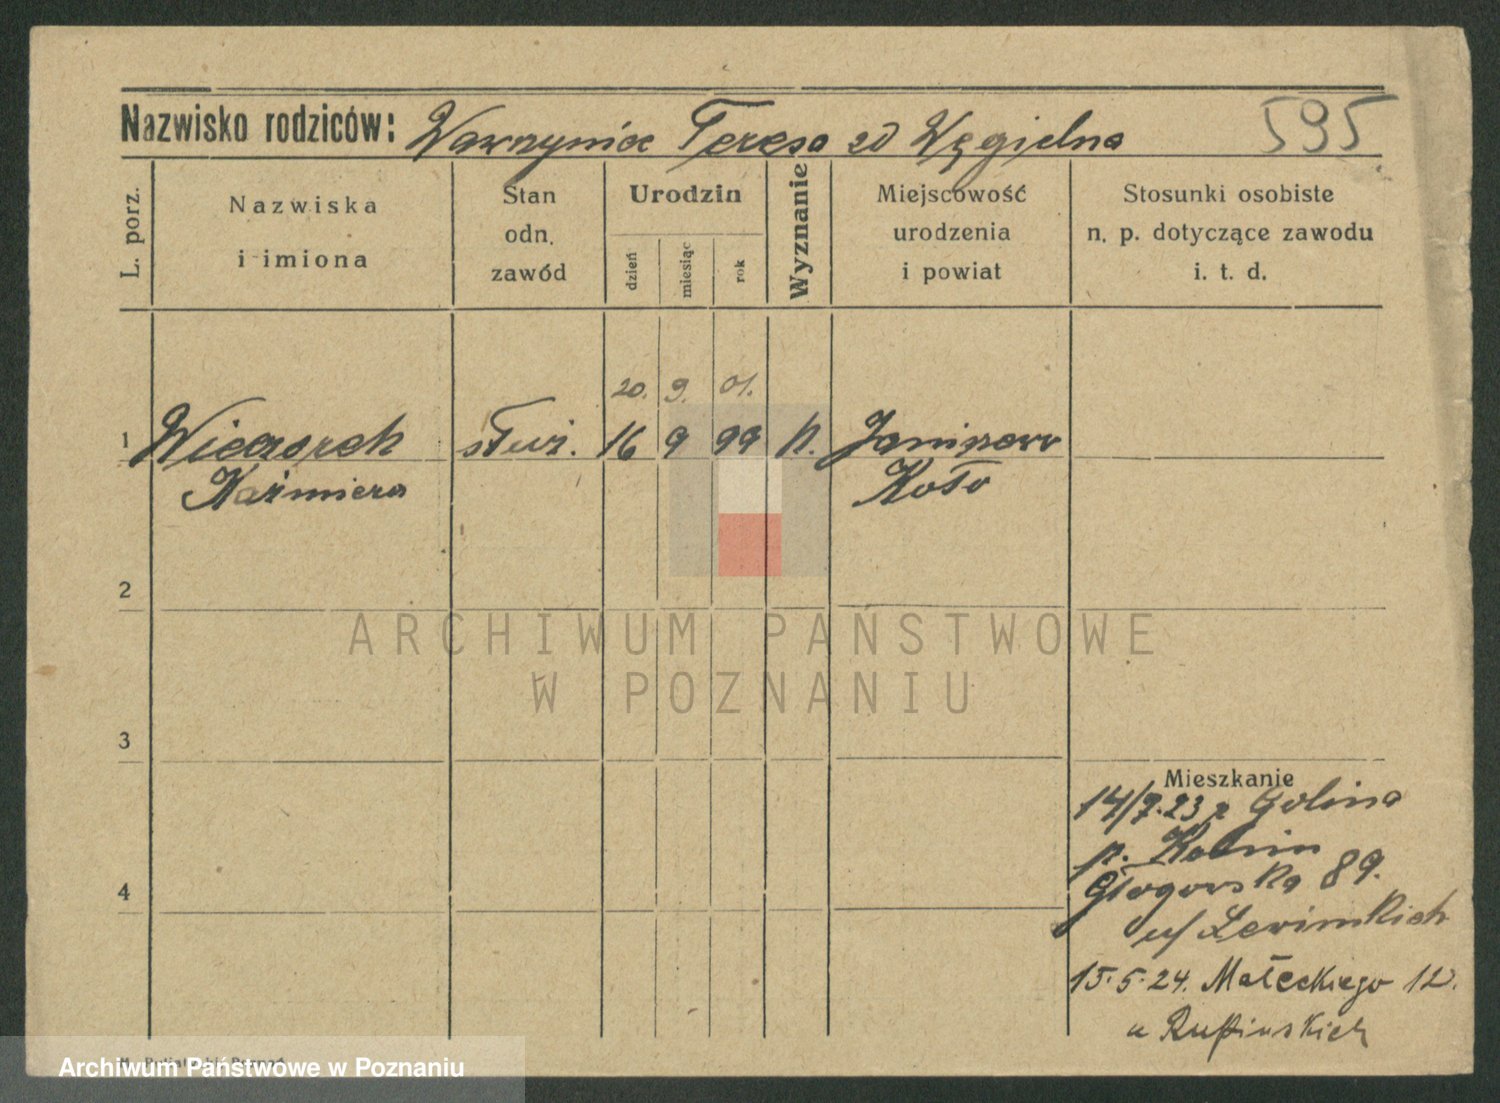 Nazwisko rodziców: Wawrzyniec Teresa zd Węgielna 595
L. porz.
Nazwiska
i imiona
Stan
odn.
zawód
Urodzin
dzień
miesiąc
rok
Wyznanie
Miejscowość
urodzenia
i powiat
Stosunki osobiste
n. p. dotyczące zawodu
i. t. d.
20. 9. 01.
1 Wieczorek służ. 16 9 99 k. Janiszew
Kaźmiera Koło
2
ARCHIWUM PAŃSTWOWE
W POZNANIU
3
Mieszkanie
14/7.23 z Golina
p. Kolnin
4
Głogowska 89.
u/
15.5.24. Małeckiego 12.
u
Archiwum Państwowe w Poznaniu